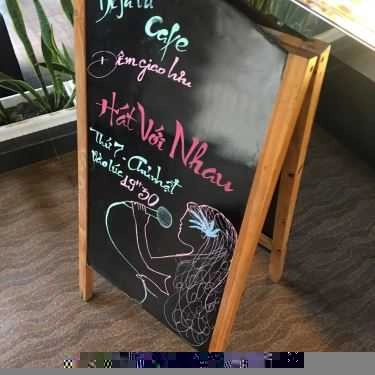 Déjà vu
Cafe
Đêm giao lưu
Hát Với Nhau
Thứ 7 - Chủ nhật
Vào lúc
19h30